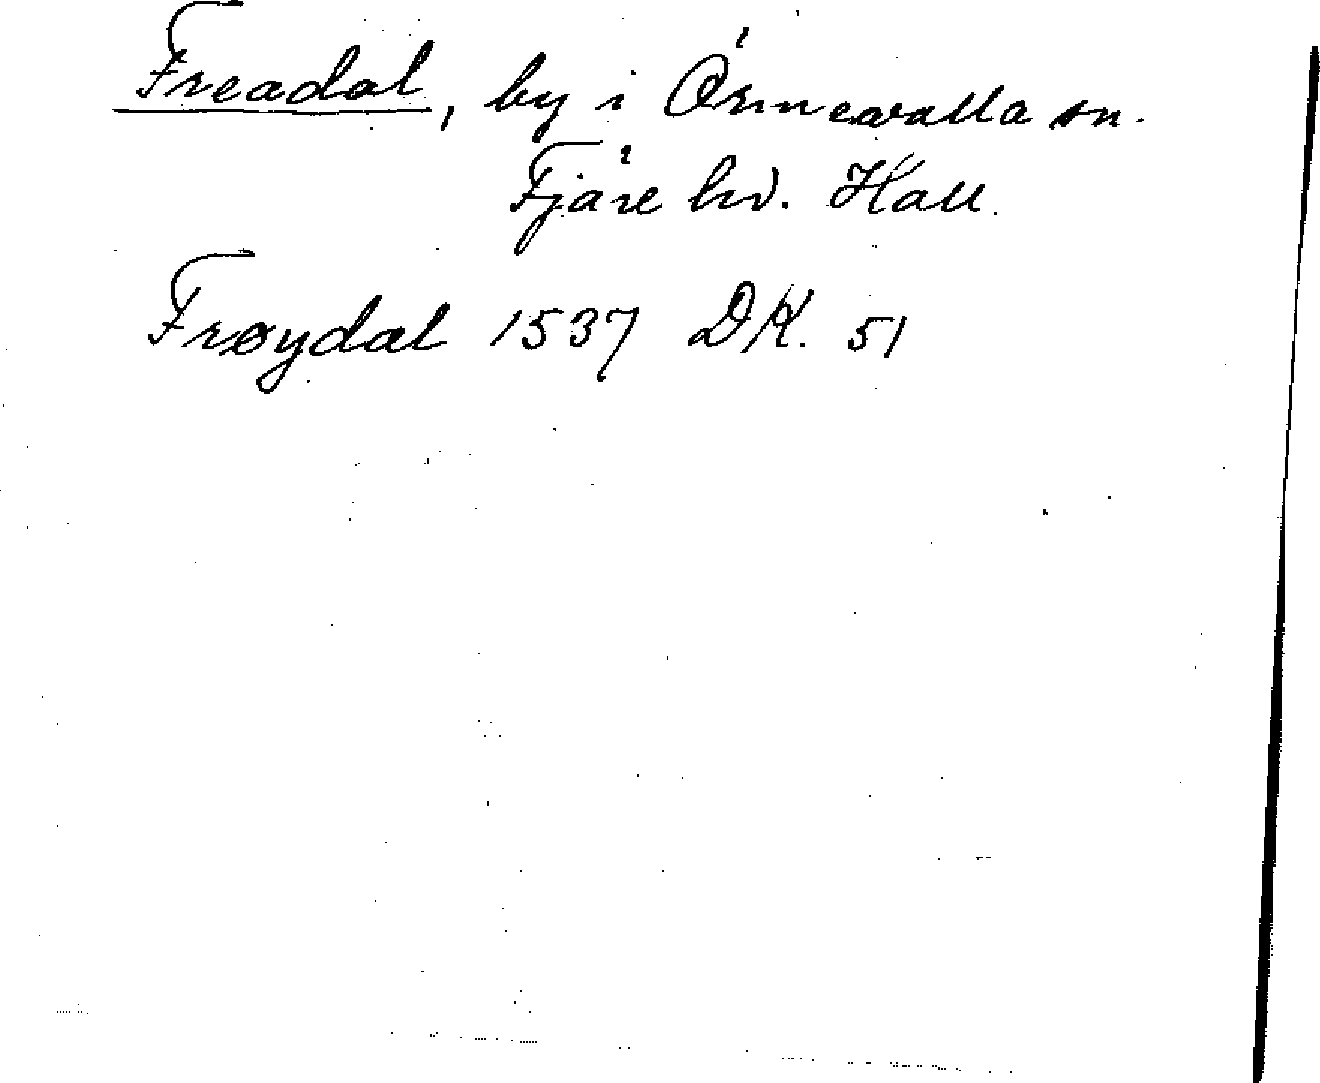 Freadal, by i Önnevalla sn.
Fjäre hd. Hall.
Frøydal 1537 DK. 51